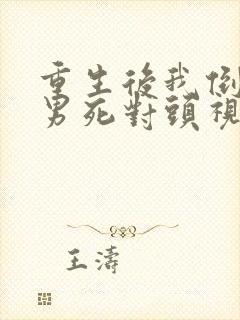 重生後我倒
男死對頭視
王濤